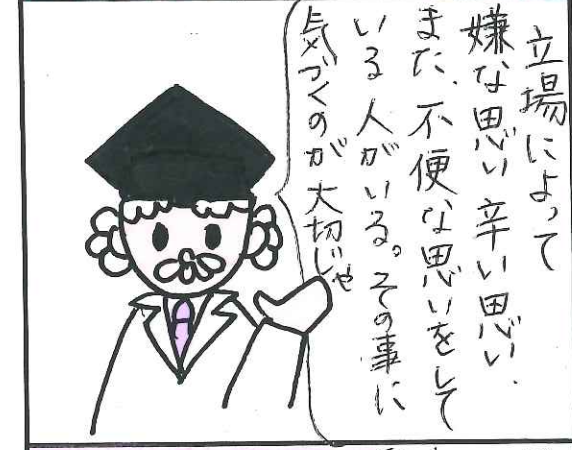 立場によって
嫌な思い 辛い思い、
また、不便な思いをして
いる人がいる。その事に
気づくのが大切じゃ